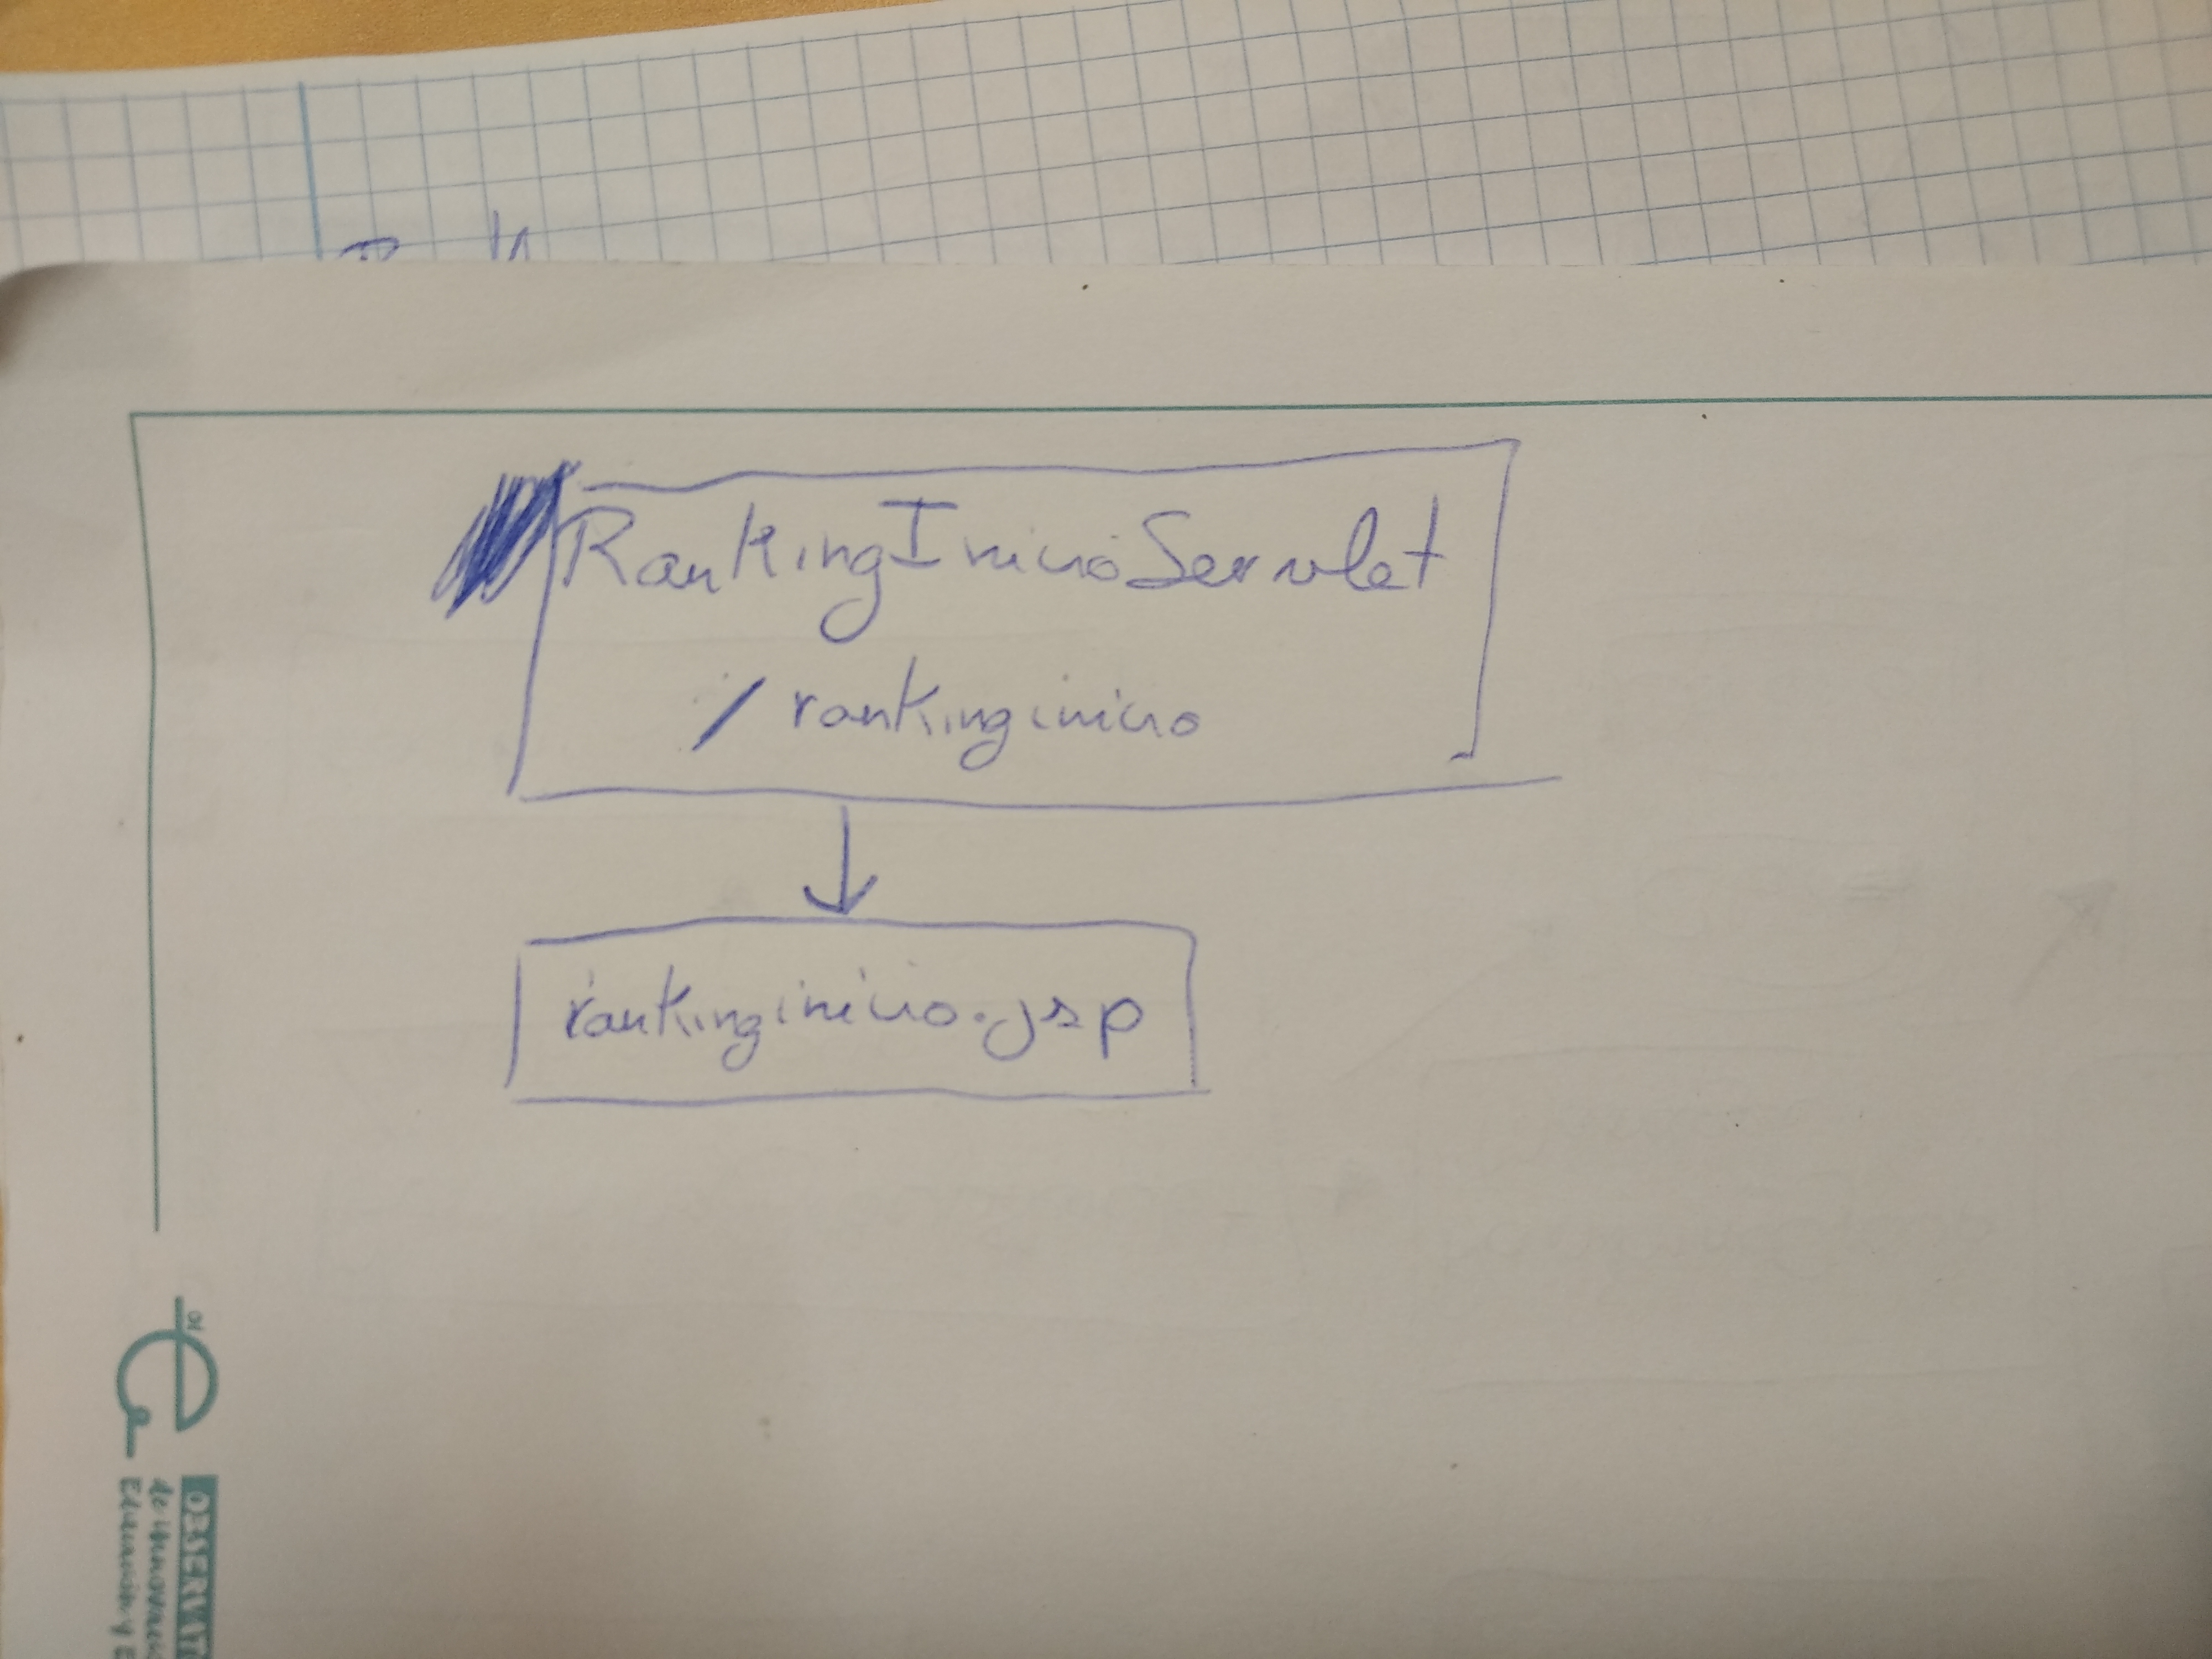 RankingInicioServlet
/rankinginicio
rankinginicio.jsp
OBSERVAT
de Innovación
Educación y E